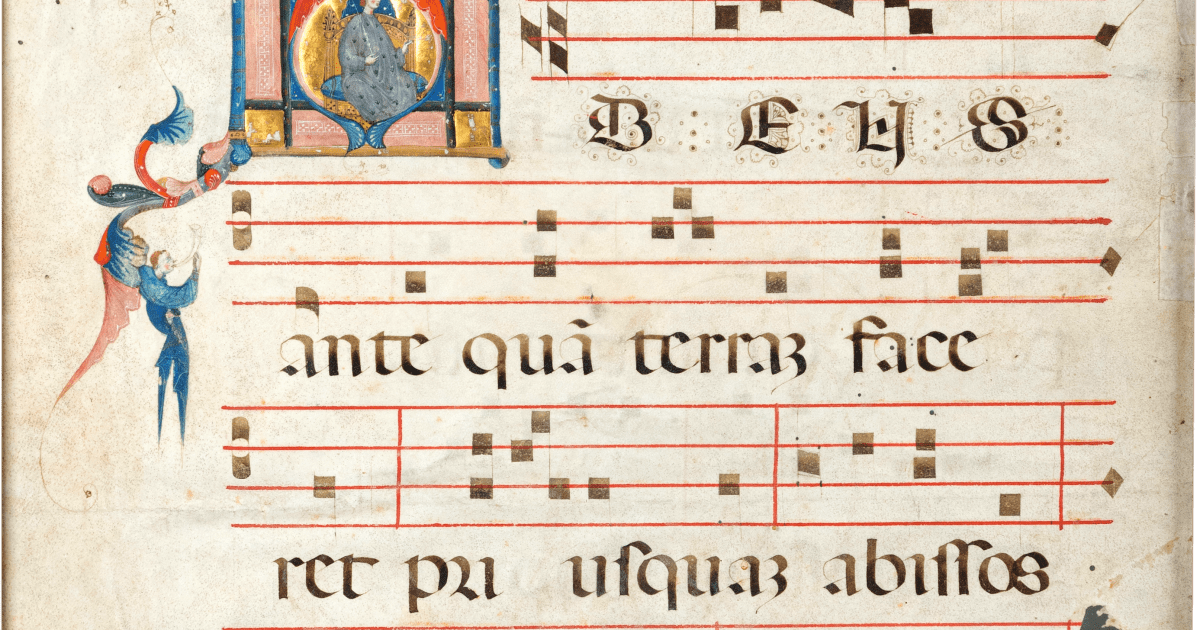 DEUS
ante quã terraꝫ face
ret pri uſquaꝫ abiſſos